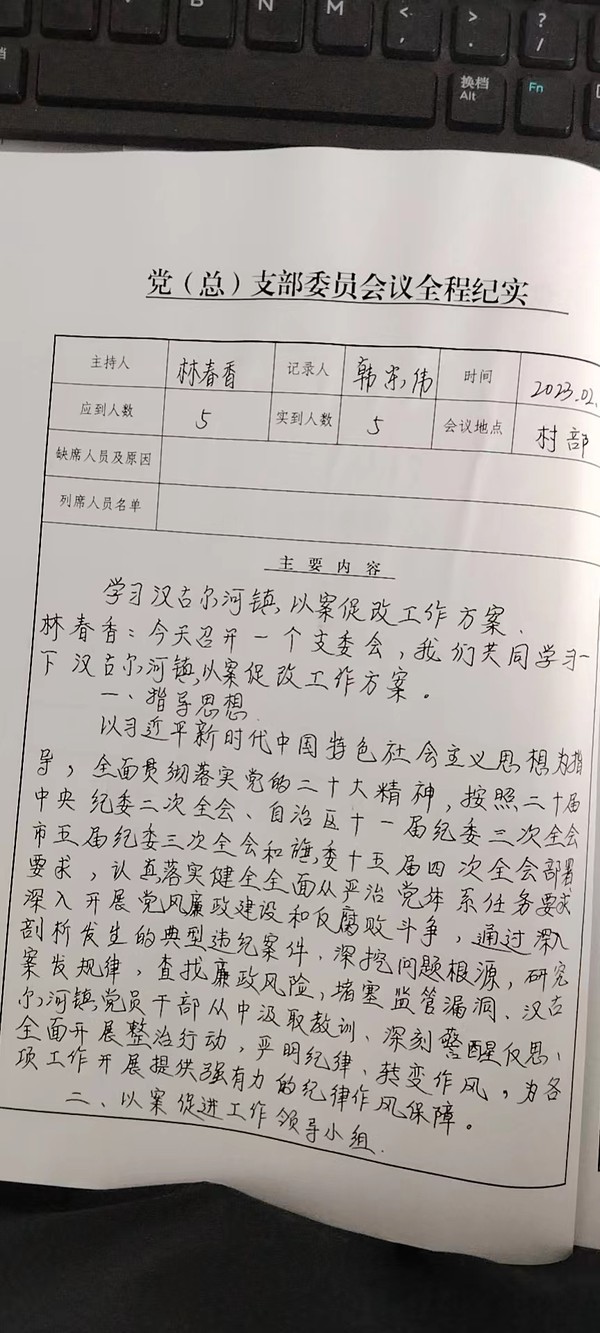 B N M < , > . ? /
换档 Alt Fn
党（总）支部委员会议全程纪实
主持人 林春香 记录人 韩 伟 时间 2023.02.
应到人数 5 实到人数 5 会议地点 村部
缺席人员及原因
列席人员名单
主要内容
学习汉古尔河镇以案促改工作方案.
林春香：今天召开一个支委会，我们共同学习一
下汉古尔河镇以案促改工作方案。
一、指导思想
以习近平新时代中国特色社会主义思想为指
导，全面贯彻落实党的二十大精神，按照二十届
中央纪委二次全会、自治区十一届纪委三次全会
市五届纪委三次全会和旗委十五届四次全会部署
要求，认真落实健全全面从严治党体系任务要求
深入开展党风廉政建设和反腐败斗争，通过深入
剖析发生的典型违纪案件、深挖问题根源，研究
案发规律，查找廉政风险，堵塞监管漏洞、汉古
尔河镇党员干部从中汲取教训、深刻警醒反思、
全面开展整治行动，严明纪律、转变作风，为各
项工作开展提供强有力的纪律作风保障。
二、以案促进工作领导小组.